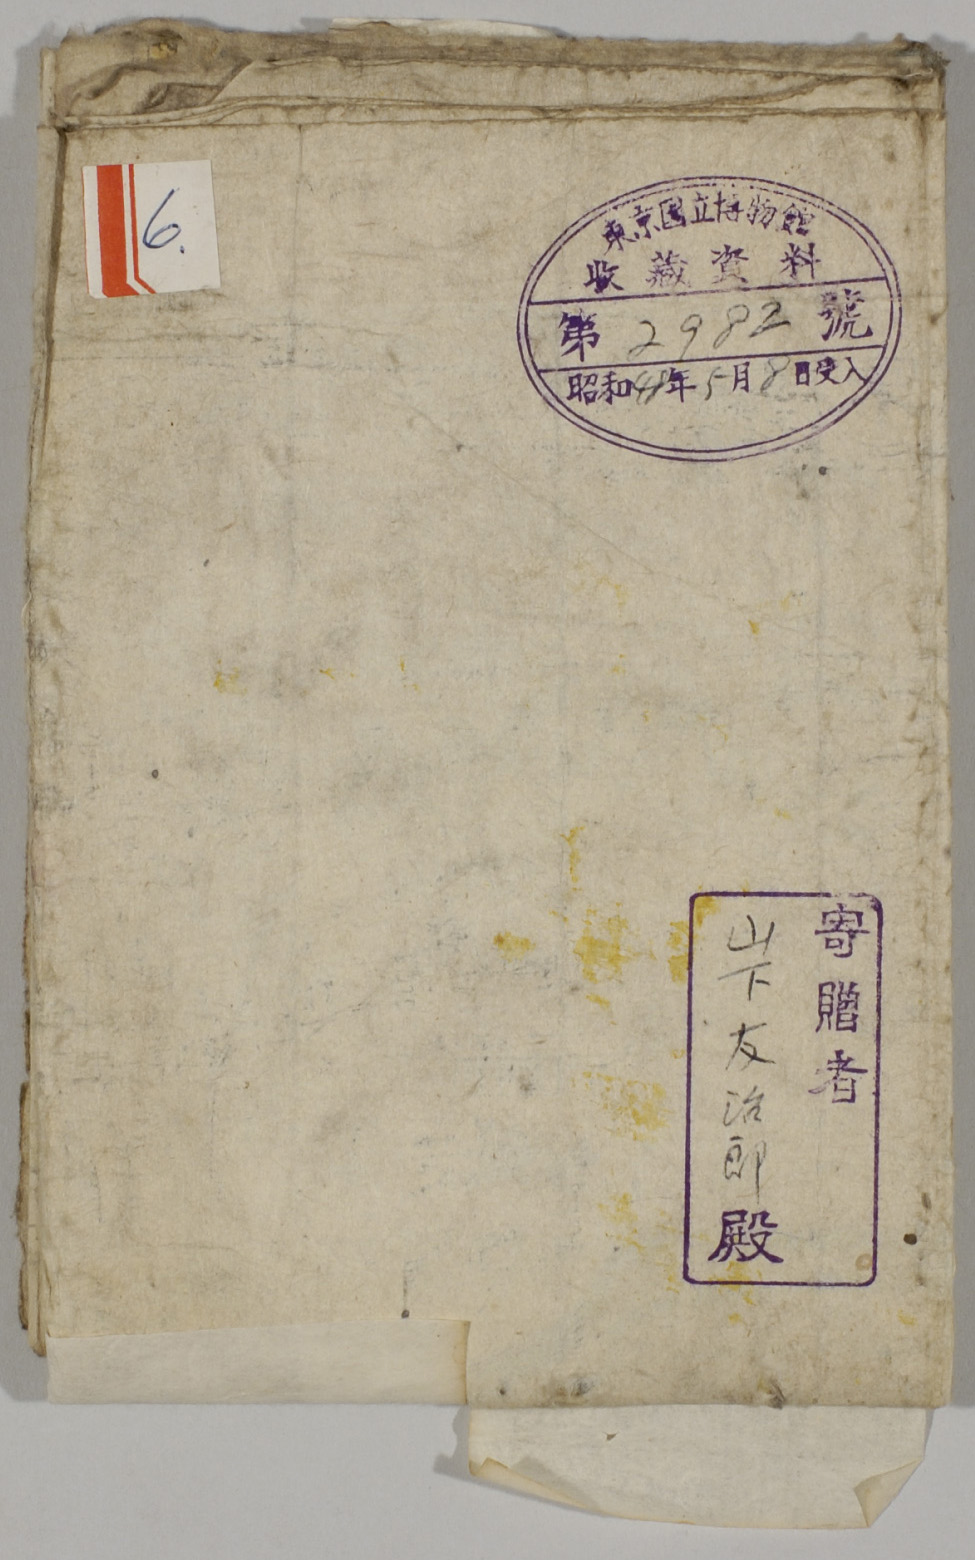 6.
東京国立博物館
收藏資料
第2982號
昭和48年5月8日受入
寄贈者
山下友治郎殿